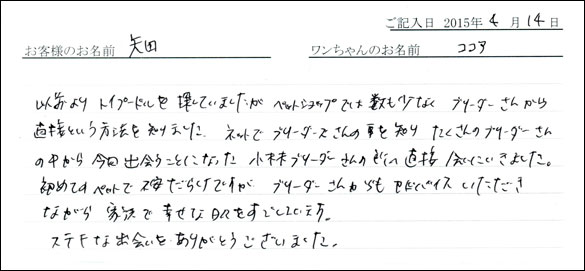 ご記入日 2015年 4月 14日
お客様のお名前 矢田 ワンちゃんのお名前 ココア
以前より トイプードルを 探していましたが ペットショップでは 数も少なく ブリーダーさんから
直接という方法を知りました。 ネットで ブリーダーズさんの事を知り たくさんのブリーダーさん
の中から 今回出会うことになった 小林ブリーダーさんの 直接 いきました。
初めてのペットで 不安だらけですが ブリーダーさんからも アドバイス いただき
ながら 家族で 幸せな日々をすごしています。
ステキな出会いを ありがとうございました。